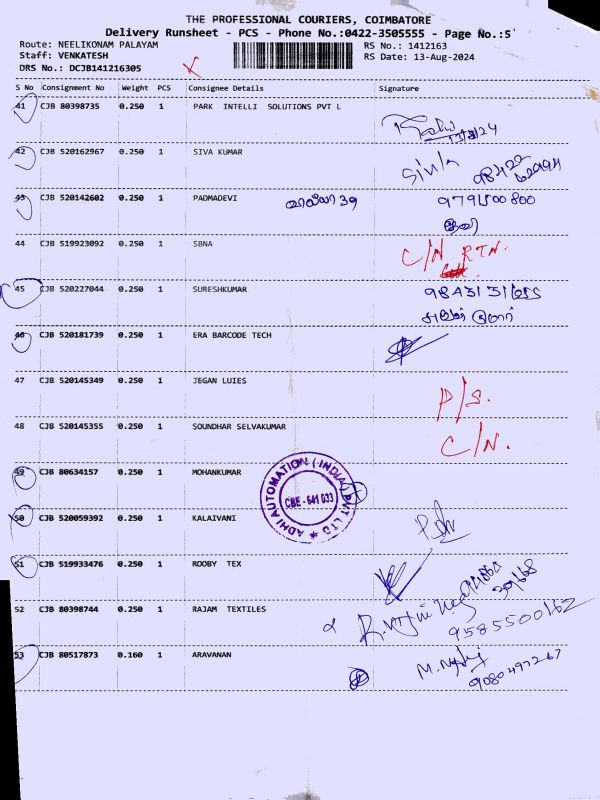 THE PROFESSIONAL COURIERS, COIMBATORE
Delivery Runsheet - PCS - Phone No.:0422-3505555 - Page No.:5
Route: NEELIKONAM PALAYAM
RS No.: 1412163
Staff: VENKATESH
RS Date: 13-Aug-2024
DRS No.: DCJB141216305
S No Consignment No Weight PCS Consignee Details Signature
41 CJB 80398735 0.250 1 PARK INTELLI SOLUTIONS PVT L
42 CJB 520162967 0.250 1 SIVA KUMAR
Siva
43 CJB 520142602 0.250 1 PADMADEVI
9791500800
44 CJB 519923092 0.250 1 SBNA
C/N RTN.
45 CJB 520227044 0.250 1 SURESHKUMAR
46 CJB 520181739 0.250 1 ERA BARCODE TECH
47 CJB 520145349 0.250 1 JEGAN LUIES
P/S.
48 CJB 520145355 0.250 1 SOUNDHAR SELVAKUMAR
C/N.
49 CJB 80634157 0.250 1 MOHANKUMAR
ADHI AUTOMATION (INDIA) PVT LTD
CBE - 641 033
50 CJB 520059392 0.250 1 KALAIVANI
51 CJB 519933476 0.250 1 ROOBY TEX
52 CJB 80398744 0.250 1 RAJAM TEXTILES
9585500162
53 CJB 80517873 0.160 1 ARAVANAN
9080497267